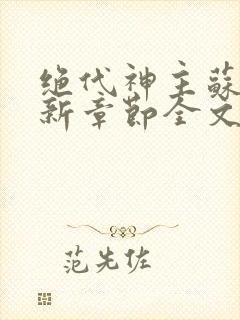 绝代神主蘇
新章節全文
范先佐